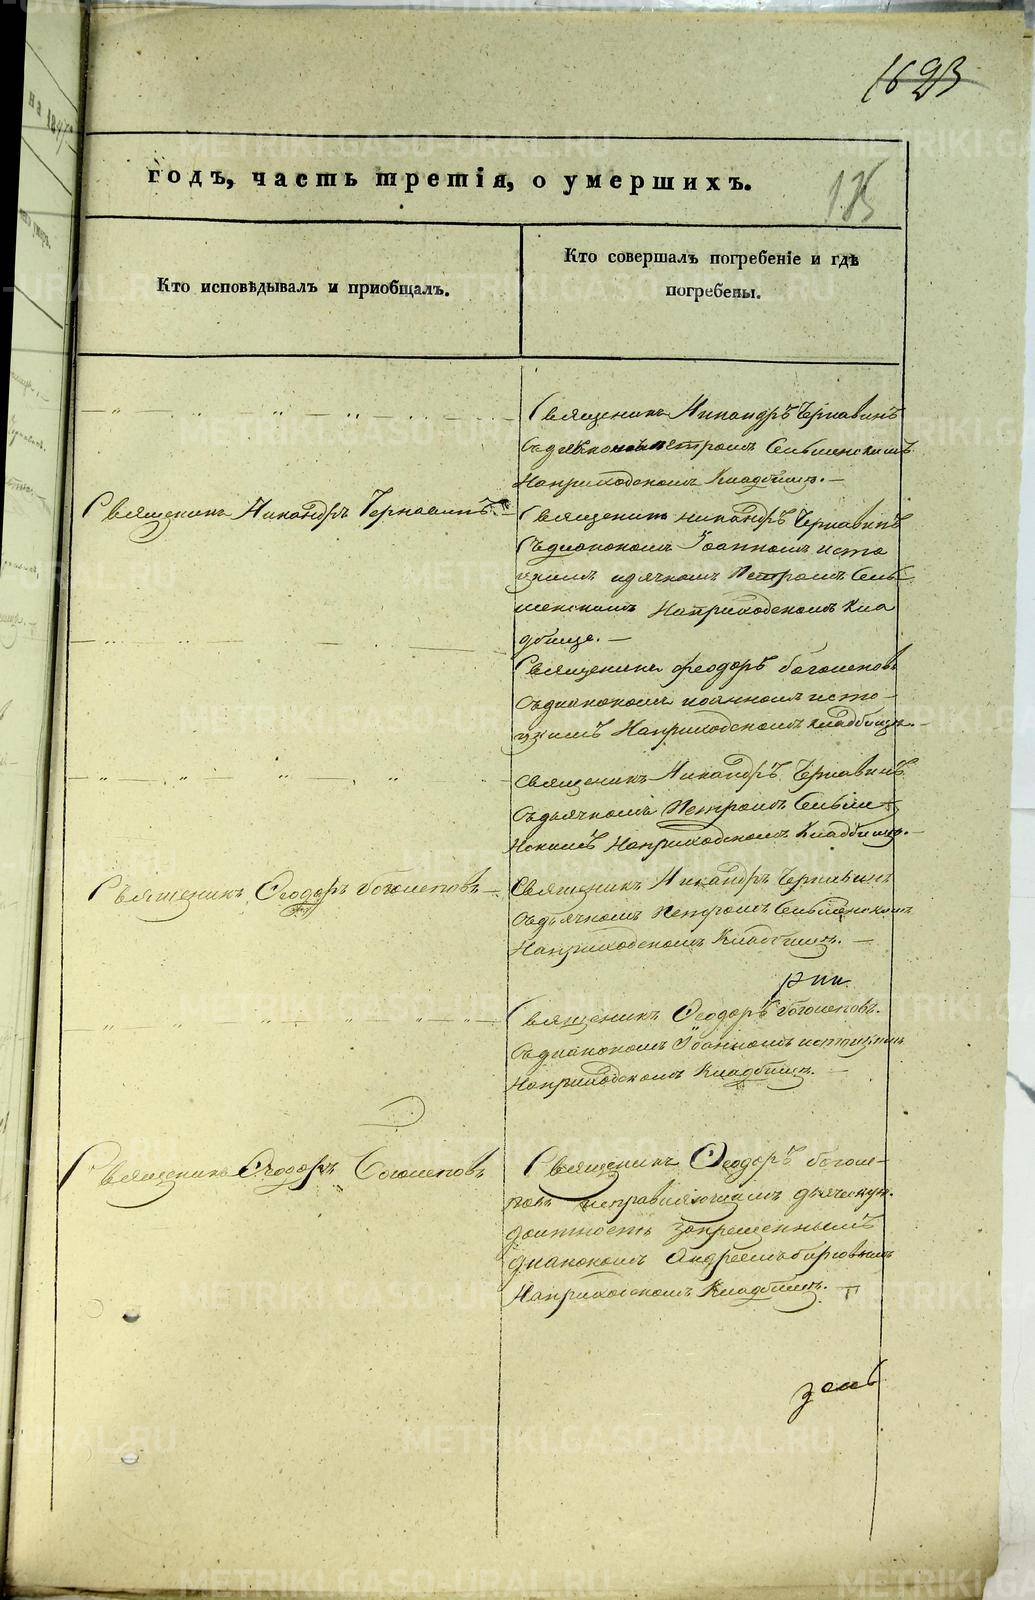 1623
годъ, часть третія, о умершихъ.
175
Кто исповѣдывалъ и пріобщалъ.
Кто совершалъ погребеніе и гдѣ
погребены.
Священникъ Никандръ Чернавинъ
съ дьячкомъ Петромъ Сельменскимъ
На приходскомъ Кладбищѣ. —
Священникъ Никандръ Чернавинъ. —
Священникъ Никандръ Чернавинъ
Съ діакономъ Іоанномъ исто
и дячкомъ Петромъ Сель
менскимъ На приходскомъ Кла
дбище. —
Священникъ Феодоръ Боголеповъ
Съ діакономъ Іоанномъ исто-
На приходскомъ кладбищѣ. —
Священникъ Никандръ Чернавинъ
Съ дьячкомъ Петромъ Сельме
Нскимъ На приходскомъ Кладбищѣ. —
Священникъ Феодоръ Боголеповъ —
Священникъ Никандръ Чернавинъ
Съ дьячкомъ Петромъ Сельменскимъ
На приходскомъ Кладбищѣ. —
Священникъ Феодоръ Боголеповъ.
Съ діакономъ Іоанномъ
На приходскомъ Кладбищѣ. —
Священникъ Феодоръ Боголеповъ
Священникъ Феодоръ Боголе-
повъ исправляющимъ дьяческую
должность запрещеннымъ
діакономъ Андреемъ
На приходскомъ Кладбищѣ. —
METRIKI.GASO-URAL.RU